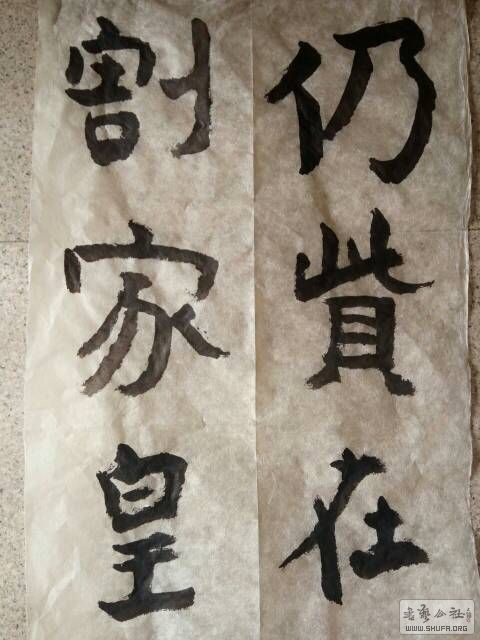 仍貲在
割家皇
書藝公社
WWW.SHUFA.ORG